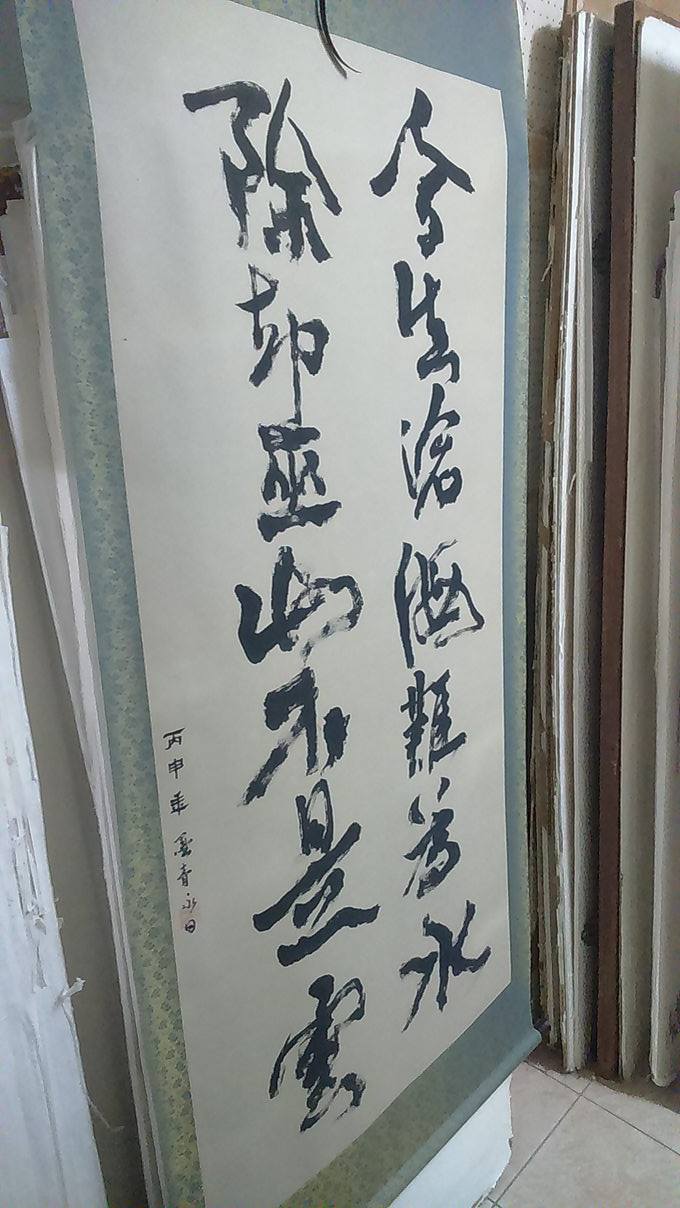 今生滄海難為水
除却巫山不是雲
丙申年 青永日